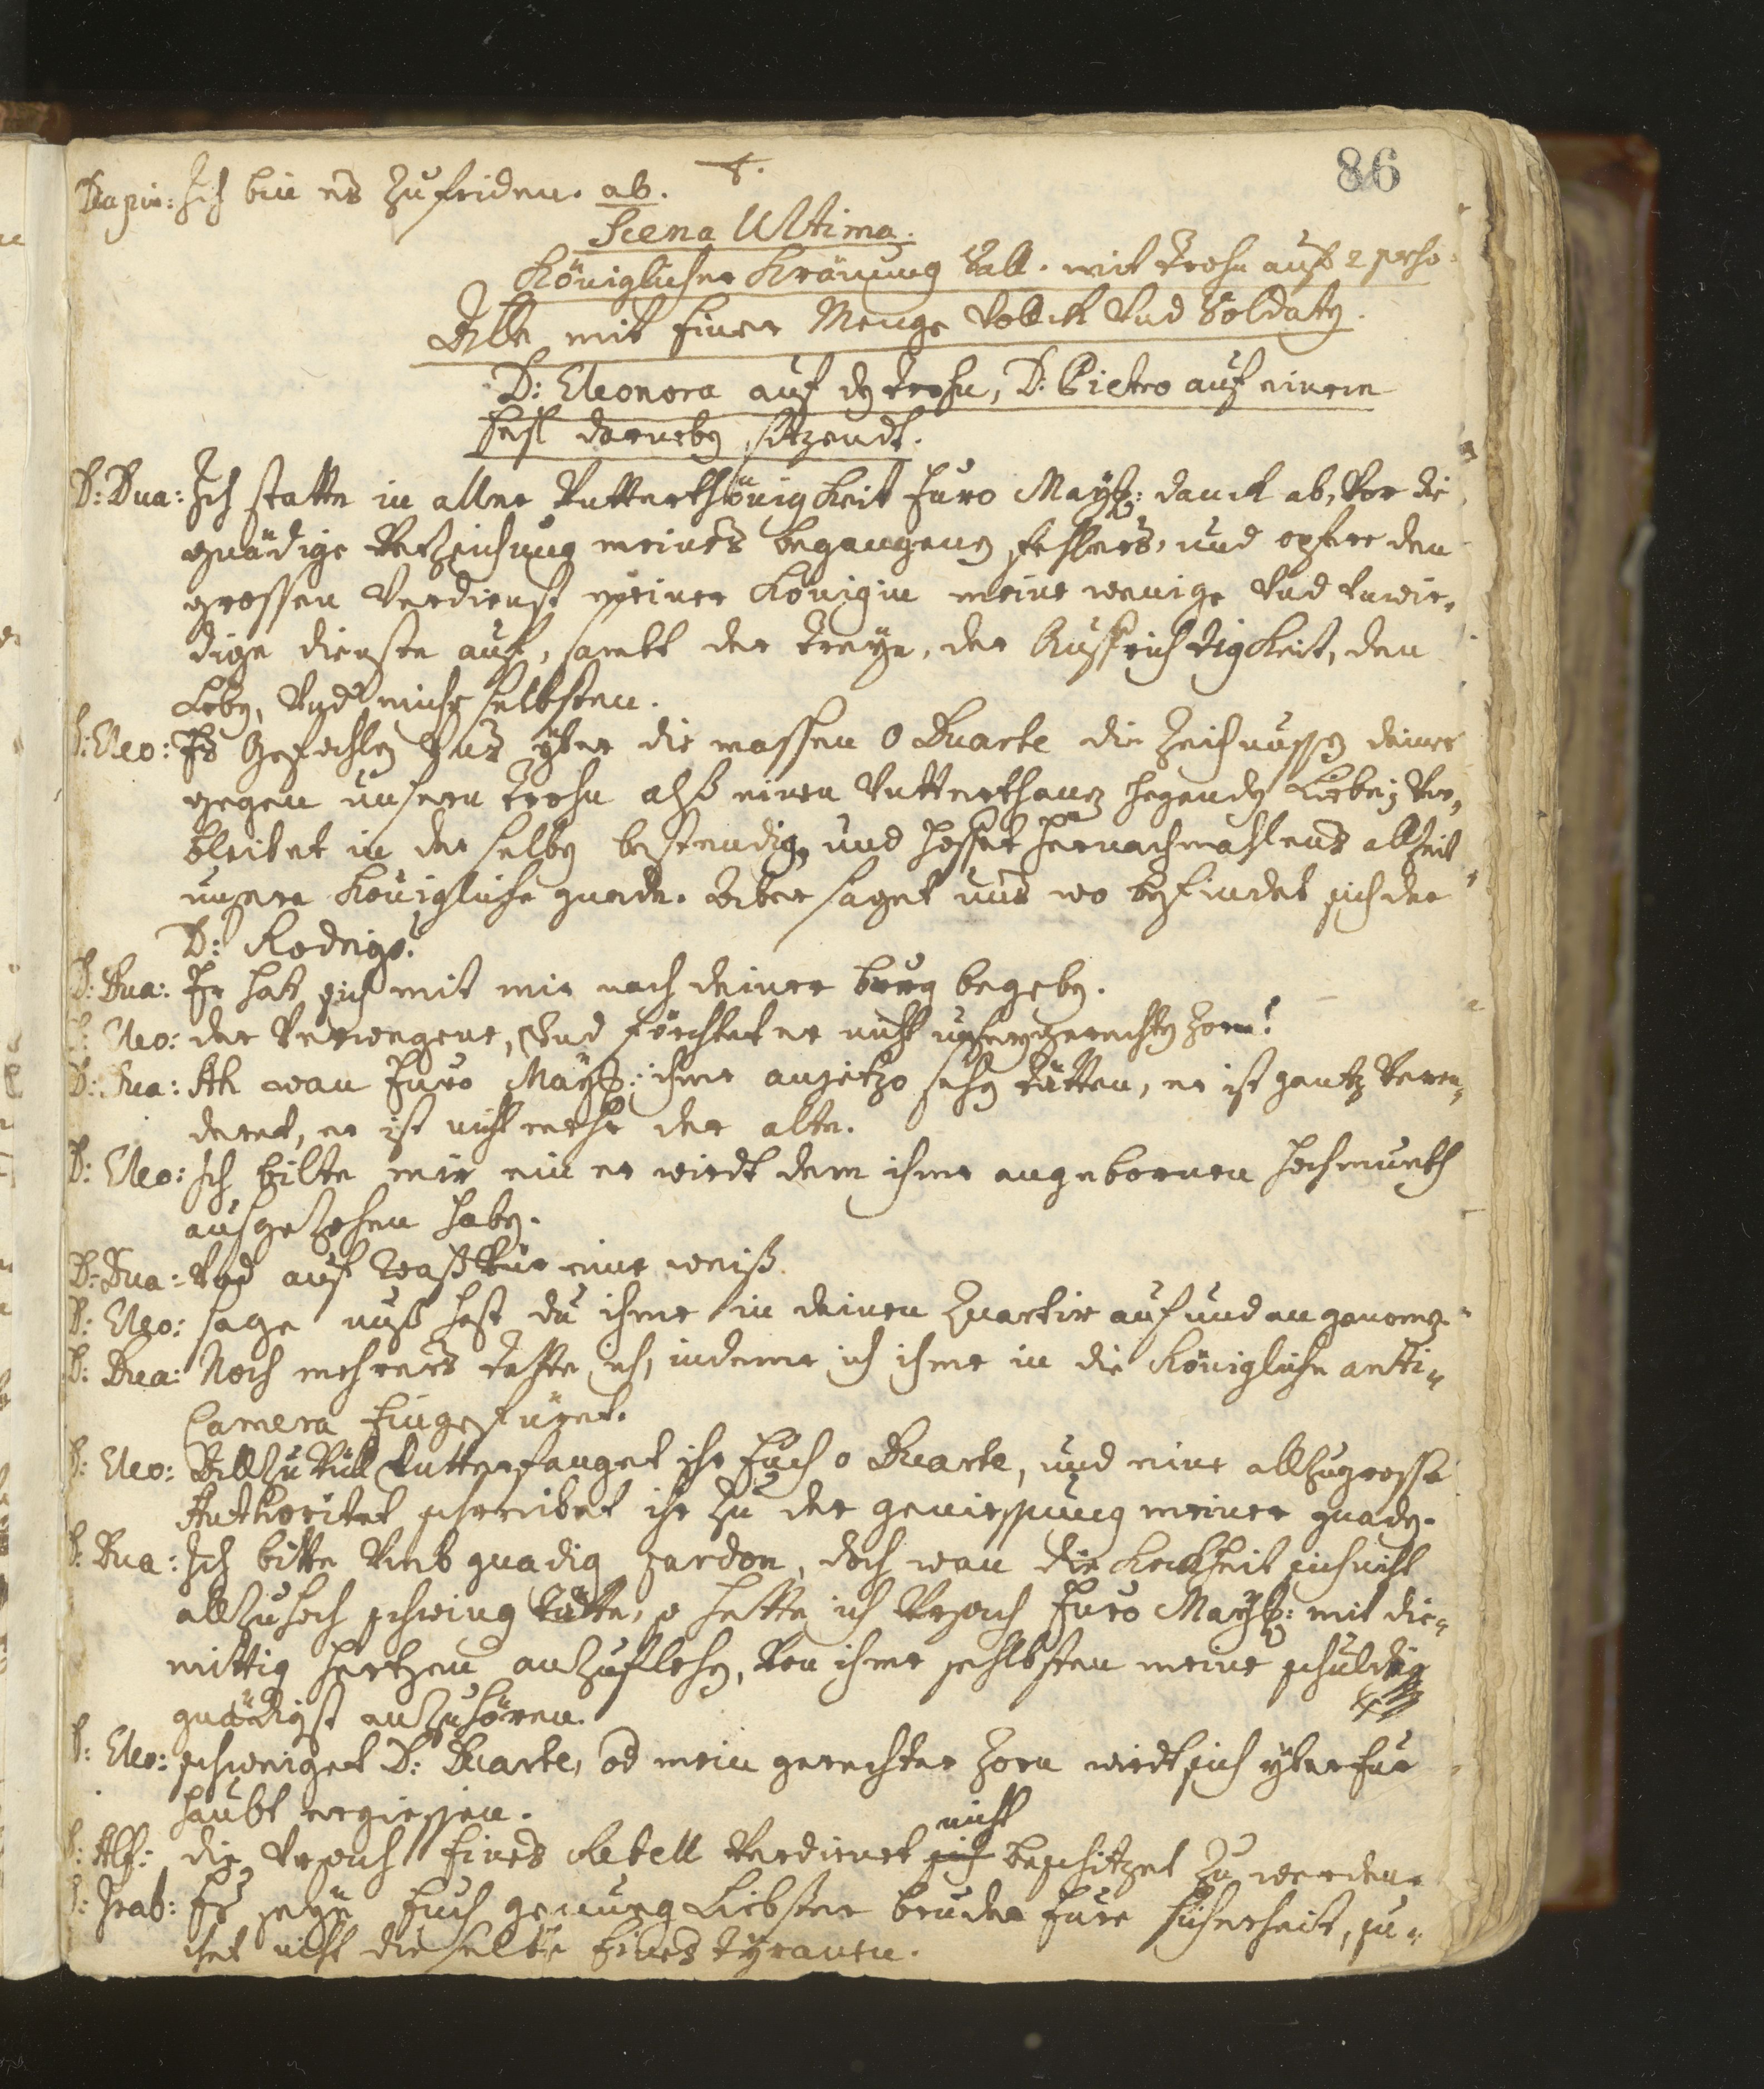 86
Papin: Ich bin es Zufriden. ab.
Scena Ultima.
Königlicher Krönung Sall. mit trohn auf 2 perso:
Alle mit Einer Menge Volck Vnd Soldaten.
D: Eleonora auf den trohn, D: Pietro auf einem
Sessl darneben sitzendt.
D: Dua: Ich statte in aller Vntterthönigkeit Euro Mayß: danck ab, Vor die
gnädige Verzeichung meines begangenen fehlers, und opfere den
grossen Verdienst meiner Königin meine wenige Vnd Vnwir„
dige dienste auf, sambt der treye, der Auffrichtigkeit, den
Leben, Vnd miche selbsten.
D: Eleo: Es Gefachlen Vns yber die massen O Duarte die Zeichnussen deiner
gegen unseren trohn alß einen Vntterthanen hegenden Liebe; Ver„
bleibet in der selben bestendig, und hoffet hernachmahlens allzeit
unsere Königliche gnade. Aber saget uns wo befindet sich der
D: Rodrigo?
D: Dua: Er hat sich mit mir nach deiner burg begeben.
D: Eleo: der Verwegene, Vnd förchtet er nicht unseren gerechten Zorn?
D: Dua: Ach wan Euro Mayß: ihme anjetzo sehen tätten, er ist gantz Veren„
deret, er ist nicht mehr der alte.
D: Eleo: Ich bilte mir ein er wirdt dem ihme angebornen hochmueth
ausgezohen haben.
D: Dua: Vnd auf waß Vür eine weiß.
D: Eleo: sage nuß hast du ihme in deinen Quartir auf und angenomen.
D: Dua: Noch mehrers tatte ich, indeme ich ihme in die Königliche anti„
Camera Eingefüret.
D: Eleo: Allzu Vill Vntterfanget ihr Euch o Duarte, und eine allzugrosse
Authoritet schreibet ihr Zu der geniessung meiner gnaden.
D: Dua: Ich bitte Vmb gnadig pardon, doch wan die Keckheit sich nicht
allzuhoch schwing tätte, so hette ich Vrsach Euro Mayß: mit die„
mittig hertzen anzuflehen, Von ihme sehlbsten meine schuldig
gnädigst anzuhören.
D: Eleo: schweiget D: Duarte, od mein gerechter Zorn wirdt sich yber Eur
haubt ergiessen.
D: Alf: die Vrsach Eines Rebell Verdienet nicht beschitzet Zu werden.
D: Isab: Es seye Euch genueg Liebster bruder Eure sicherheit, su„
chet nicht dieselbe Eines tyranen.